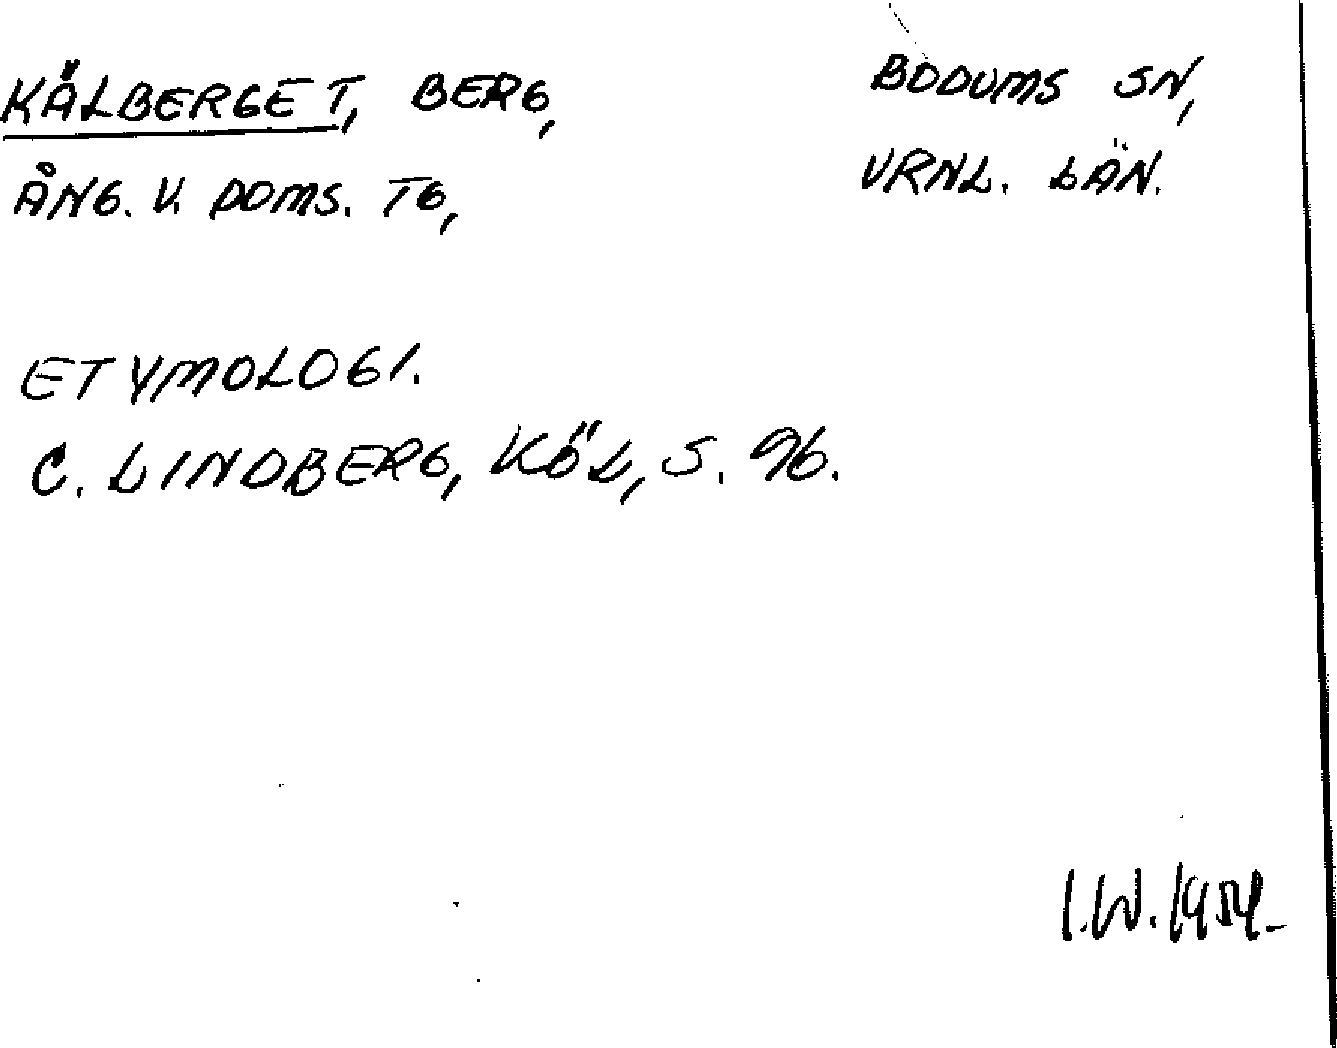 KÄLBERGET, BERG, BODUMS SN,
ÅNG. V. DOMS. TG, VRNL. LÄN.
ETYMOLOGI.
C. LINDBERG, KÖL, S. 96.
I.W. 1954.